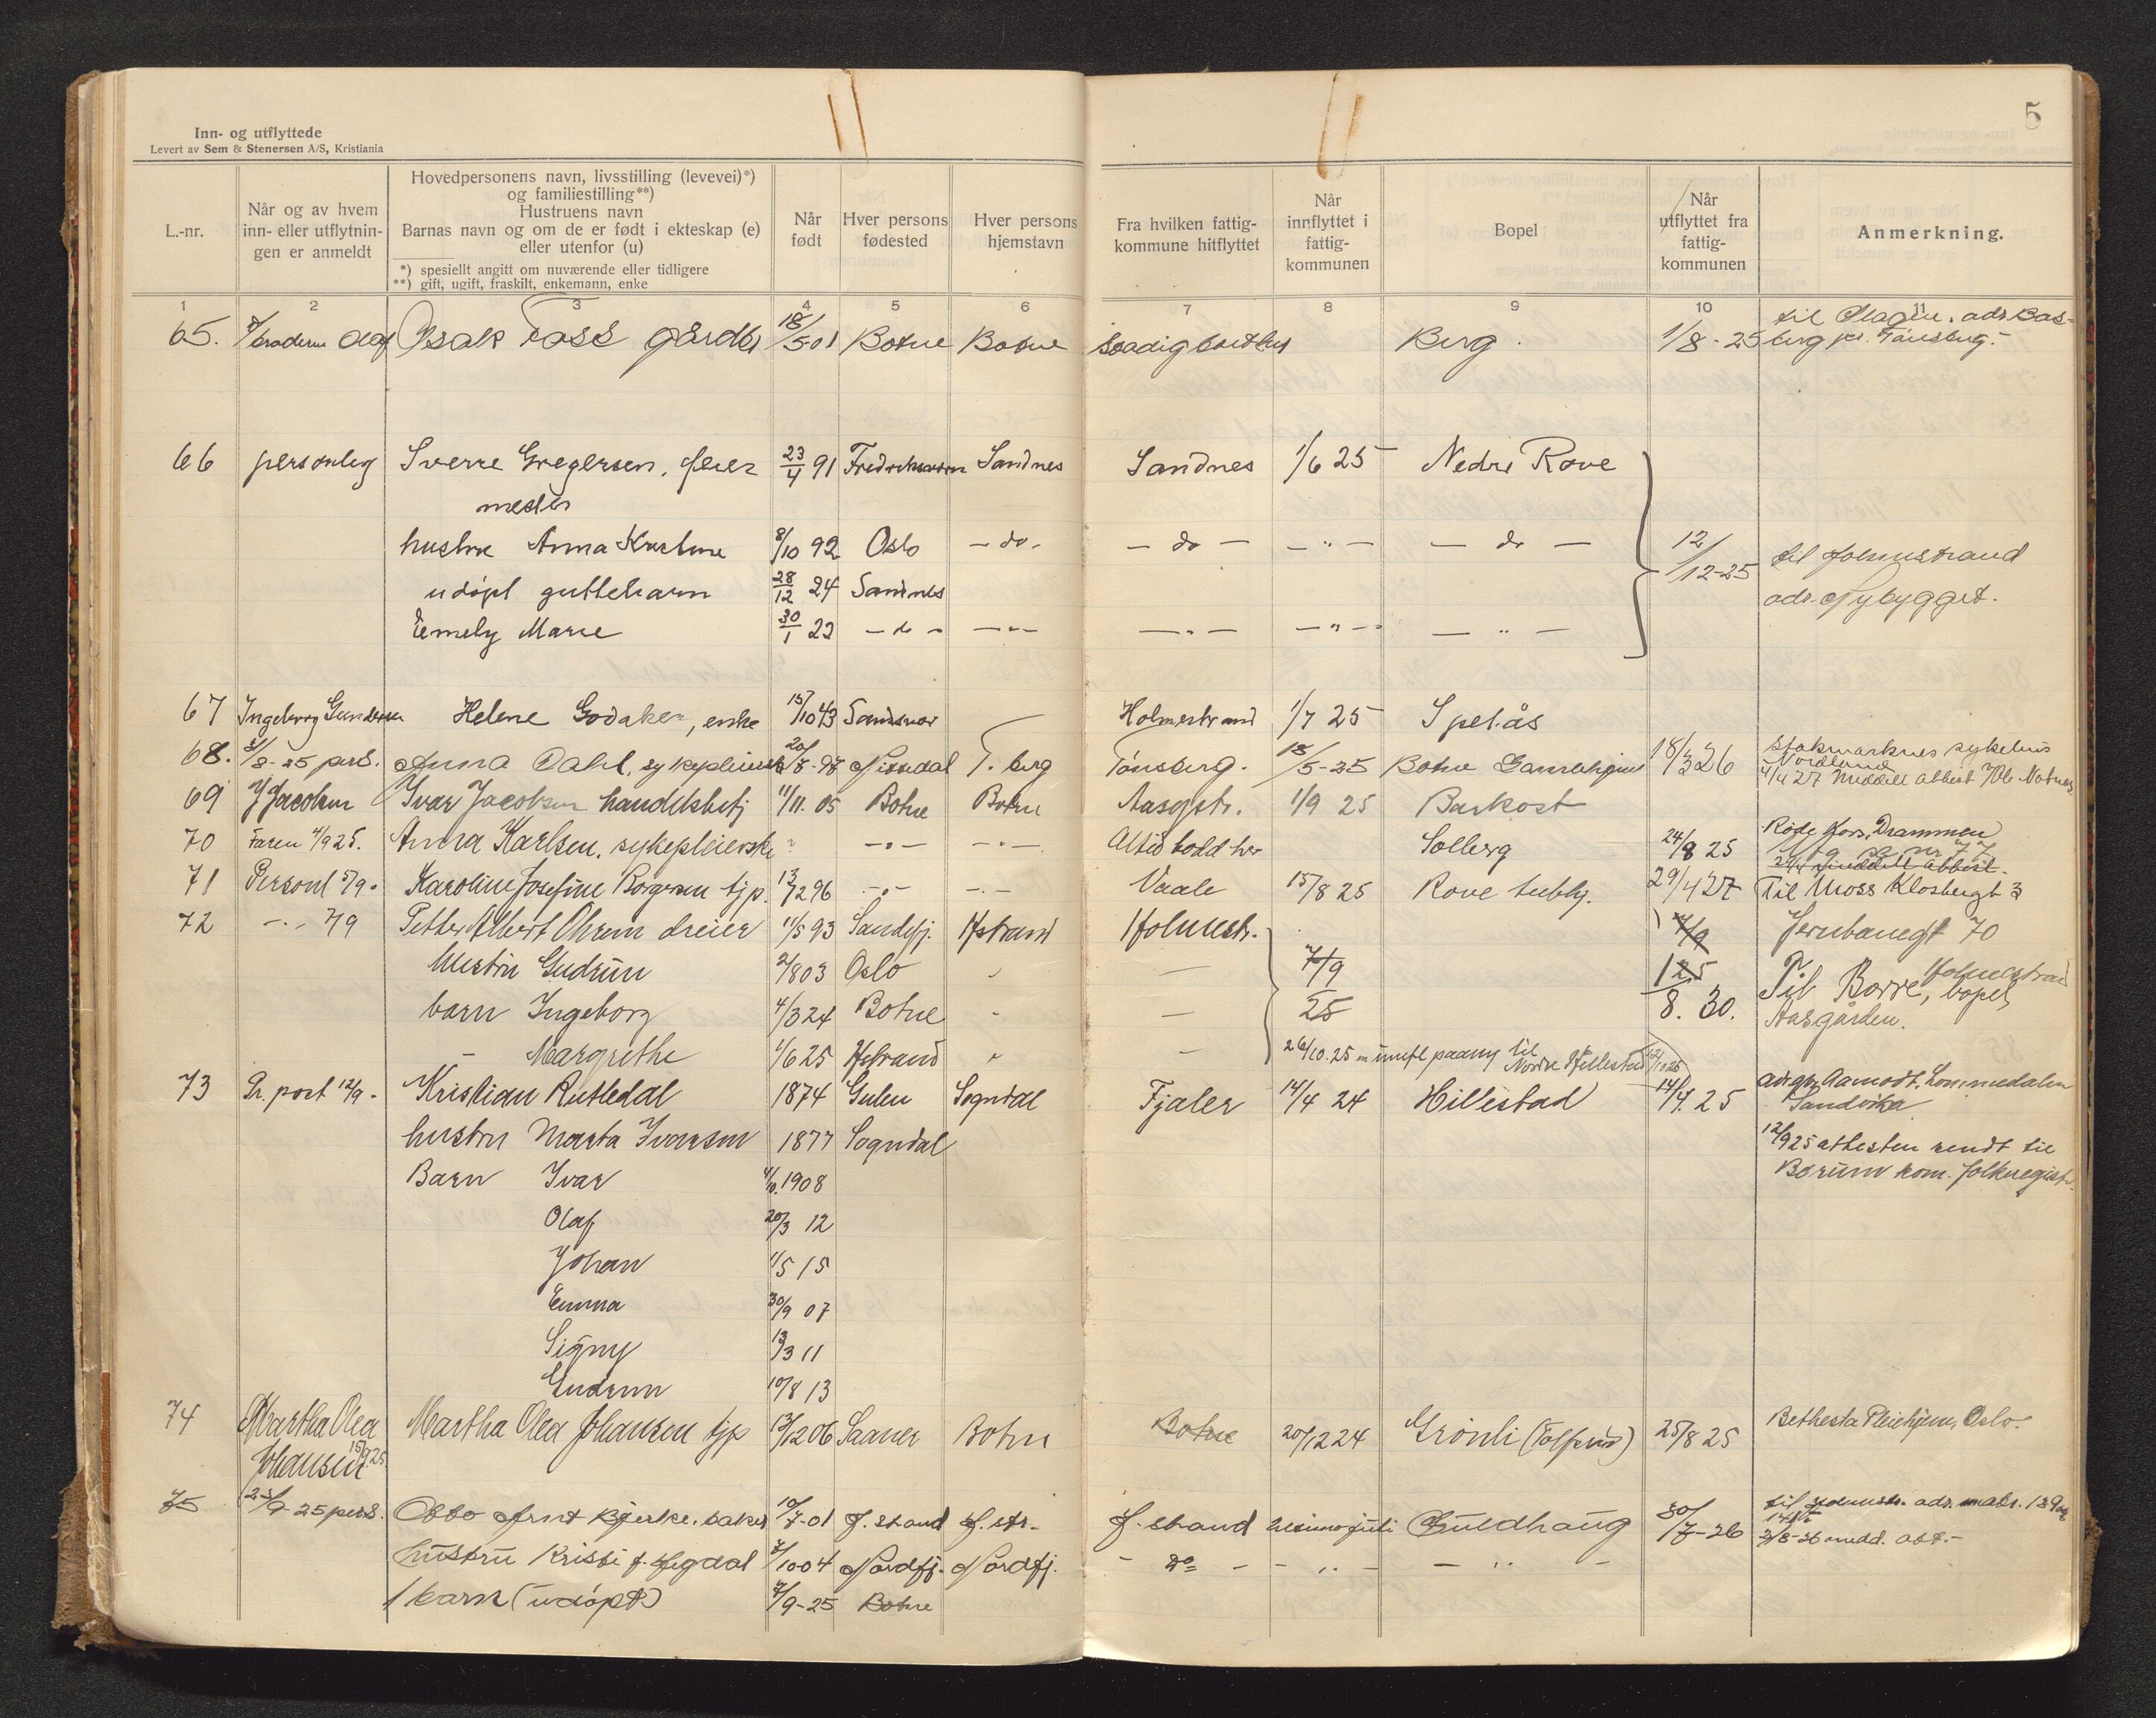 5
Inn- og utflyttede
Levert av Sem & Stenersen A/S, Kristiania
L.-nr.
Når og av hvem
inn- eller utflytnin-
gen er anmeldt
Hovedpersonens navn, livsstilling (levevei)*)
og familiestilling**)
Hustruens navn
Barnas navn og om de er født i ekteskap (e)
eller utenfor (u)
*) spesiellt angitt om nuværende eller tidligere
**) gift, ugift, fraskilt, enkemann, enke
Når
født
Hver persons
fødested
Hver persons
hjemstavn
Fra hvilken fattig-
kommune hitflyttet
Når
innflyttet i
fattig-
kommunen
Bopel
Når
utflyttet fra
fattig-
kommunen
Anmerkning.
1 2 3 4 5 6 7 8 9 10 11
65. broderen Olaf Isak 18/5-01 Botne Botne Berg. 1/8-25 til adr. Bas-
berg pr. Tønsberg.-
66 personleg Sverre Gregersen, feier 23/4 91 Sandnes Sandnes 1/6 25 Nedre Rove
mester
hustru Anna Kristine 8/10 92 Oslo - do - - do - - " - - do - 12/12-25 til Holmestrand
udøpt guttebarn 28/12 24 Sandnes adr. Nybygget.
Emely Marie 30/1 22 - do - - " - - " - - " - - " -
67 Ingeborg Gundersen Helene Godaker, enke 15/10 43 Holmestrand 1/7 25 Spelås
68. 31/8-25 pers. Anna Dahl, sykepleierske 20/8-98 Nissedal T.berg Tønsberg. 18/5-25 Botne Gamlehjem 18/3 26 Stokmarknes sykehus
Nordland
4/4 27 meddelt attest
69 J Jacobsen Ivar Jacobsen handelsbetj 11/11. 05 Botne Botne Aasgstr. 1/9 25 Barkost
70 Faren 4/9 25. Anna Karlsen, sykepleierske ? - " - - " - Altid bodd her Solberg 24/8 25 Røde Kors, Drammen
71 Personl 5/9. Karoline Josefine Borgersen tjp. 13/12 96 - " - - " - Vaale 15/8 25 Rove 29/4 27 Til Moss Klosbergt 3
72 - " - 7/9 Petter Albert Ohren dreier 11/5 93 Sandefj. Hstrand Holmestr. 7/9 Jernbanegt 70
hustru Gudrun 2/8 03 Oslo " - 7/9 125 Holmestrand
barn Ingeborg 4/3 24 Botne " - 25 8. 30. Til Borre, bopel
Aasgården.
- Margrethe 1/6 25 Hstrand " - 26/10. 25 innfl paany til
Nordre Hillestad
73 Pr. post 12/9. Kristian Rutledal 1874 Gulen Sogndal Fjaler 14/4 24 Hillestad 14/4. 25 adr. Aamodt, Lommedalen
Sandvika
hustru Marta Ivarsen 1877 Sogndal 12/9 25 attesten sendt til
Bærum kom. folkeregister.
Barn Ivar 4/10. 1908
Olaf 20/3 12
Johan 1/5 15
Emma 30/9 07
Signy 13/3 11
Gudrun 10/8 13
74 Martha Olea
Johansen 15/9 25. Martha Olea Johansen tjp 13/12 06 Saaner Botne Botne 20/12 24 Grønli (Tolfsrud) 25/8 25 Bethesta Pleiehjem, Oslo
75 23/9-25 pers. Otto Arnt Bjerke, baker 10/7-01 H.strand H.str. H.strand juli Guldhaug 30/7-26 til Holmestr. adr.
3/8-26 medd. att.-
hustru Kristi f. Hegdal 7/10 04 Nordfj. Nordfj. - do - - " - - " -
1 barn (udøpt) 7/9-25 Botne